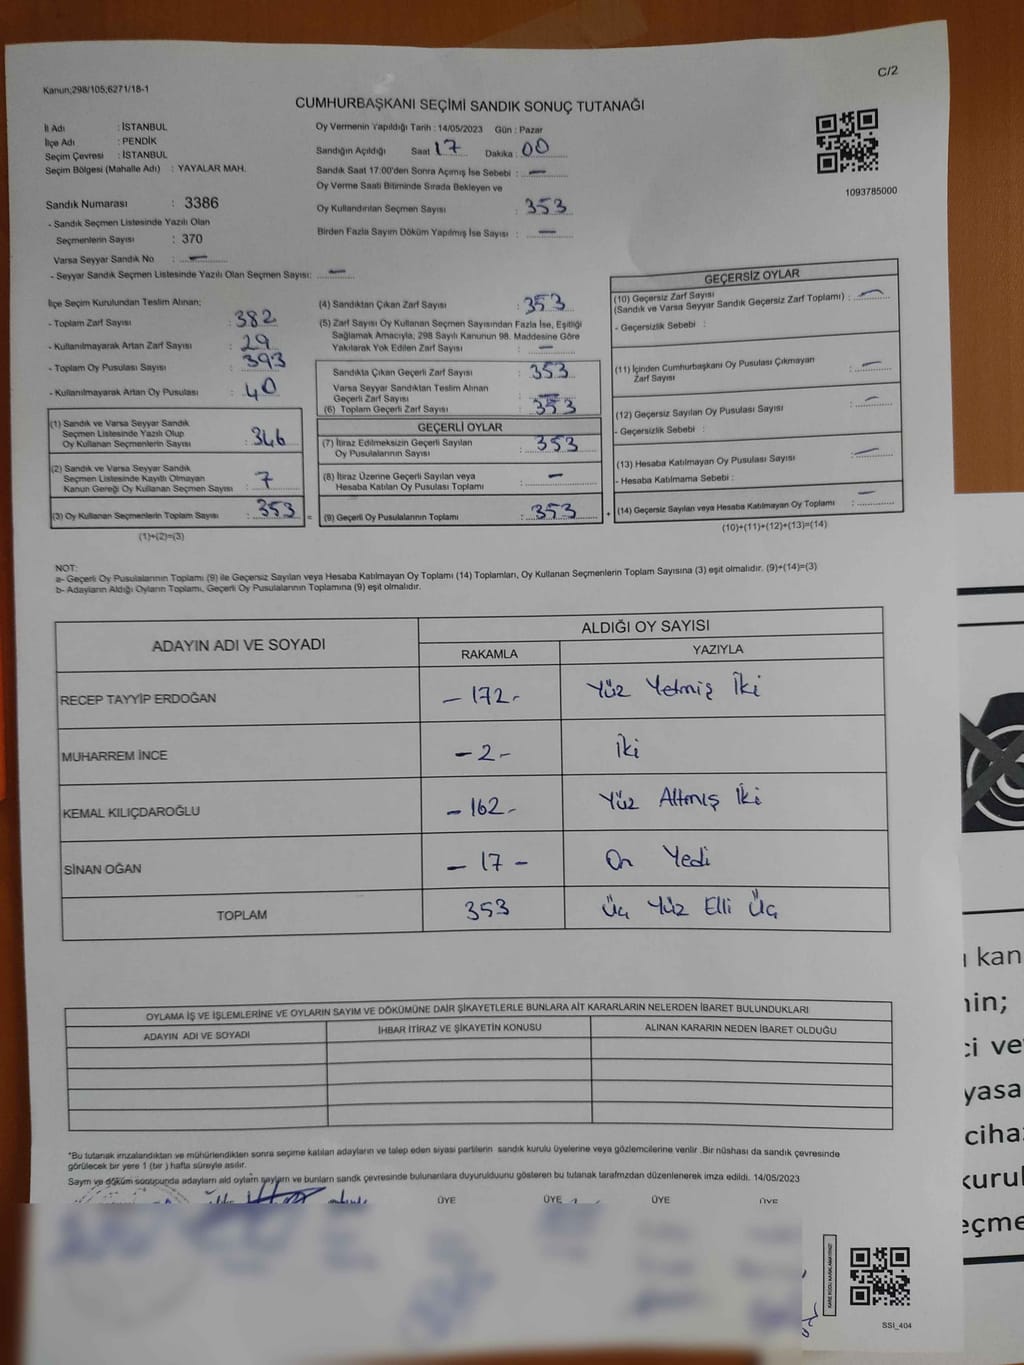 C/2
Kanun;298/105;6271/18-1
CUMHURBAŞKANI SEÇİMİ SANDIK SONUÇ TUTANAĞI
İl Adı : İSTANBUL
İlçe Adı : PENDİK
Seçim Çevresi : İSTANBUL
Seçim Bölgesi (Mahalle Adı) : YAYALAR MAH.
Sandık Numarası : 3386
- Sandık Seçmen Listesinde Yazılı Olan
Seçmenlerin Sayısı : 370
Varsa Seyyar Sandık No : —
- Seyyar Sandık Seçmen Listesinde Yazılı Olan Seçmen Sayısı: —
Oy Vermenin Yapıldığı Tarih : 14/05/2023 Gün : Pazar
Sandığın Açıldığı Saat 17 Dakika : 00
Sandık Saat 17:00'den Sonra Açımış İse Sebebi : —
Oy Verme Saati Bitiminde Sırada Bekleyen ve
Oy Kullandırılan Seçmen Sayısı : 353
Birden Fazla Sayım Döküm Yapılmış İse Sayısı : —
1093785000
İlçe Seçim Kurulundan Teslim Alınan;
- Toplam Zarf Sayısı : 382
- Kullanılmayarak Artan Zarf Sayısı : 29
- Toplam Oy Pusulası Sayısı : 393
- Kullanılmayarak Artan Oy Pusulası : 40
(1) Sandık ve Varsa Seyyar Sandık
Seçmen Listesinde Yazılı Olup
Oy Kullanan Seçmenlerin Sayısı : 346
(2) Sandık ve Varsa Seyyar Sandık
Seçmen Listesinde Kayıtlı Olmayan
Kanun Gereği Oy Kullanan Seçmen Sayısı : 7
(3) Oy Kullanan Seçmenlerin Toplam Sayısı : 353 =
(1)+(2)=(3)
(4) Sandıktan Çıkan Zarf Sayısı : 353
(5) Zarf Sayısı Oy Kullanan Seçmen Sayısından Fazla İse, Eşitliği
Sağlamak Amacıyla; 298 Sayılı Kanunun 98. Maddesine Göre
Yakılarak Yok Edilen Zarf Sayısı : —
Sandıkta Çıkan Geçerli Zarf Sayısı : 353
Varsa Seyyar Sandıktan Teslim Alınan
Geçerli Zarf Sayısı : —
(6) Toplam Geçerli Zarf Sayısı : 353
GEÇERLİ OYLAR
(7) İtiraz Edilmeksizin Geçerli Sayılan
Oy Pusulalarının Sayısı : 353
(8) İtiraz Üzerine Geçerli Sayılan veya
Hesaba Katılan Oy Pusulası Toplamı : —
(9) Geçerli Oy Pusulalarının Toplamı : 353 +
GEÇERSİZ OYLAR
(10) Geçersiz Zarf Sayısı
(Sandık ve Varsa Seyyar Sandık Geçersiz Zarf Toplamı) : —
- Geçersizlik Sebebi :
(11) İçinden Cumhurbaşkanı Oy Pusulası Çıkmayan
Zarf Sayısı : —
(12) Geçersiz Sayılan Oy Pusulası Sayısı : —
- Geçersizlik Sebebi :
(13) Hesaba Katılmayan Oy Pusulası Sayısı : —
- Hesaba Katılmama Sebebi :
(14) Geçersiz Sayılan veya Hesaba Katılmayan Oy Toplamı : —
(10)+(11)+(12)+(13)=(14)
NOT:
a- Geçerli Oy Pusulalarının Toplamı (9) ile Geçersiz Sayılan veya Hesaba Katılmayan Oy Toplamı (14) Toplamları, Oy Kullanan Seçmenlerin Toplam Sayısına (3) eşit olmalıdır. (9)+(14)=(3)
b- Adayların Aldığı Oyların Toplamı, Geçerli Oy Pusulalarının Toplamına (9) eşit olmalıdır.
ADAYIN ADI VE SOYADI ALDIĞI OY SAYISI
RAKAMLA YAZIYLA
RECEP TAYYİP ERDOĞAN - 172 - Yüz Yetmiş İki
MUHARREM İNCE - 2 - İki
KEMAL KILIÇDAROĞLU - 162 - Yüz Altmış İki
SİNAN OĞAN - 17 - On Yedi
TOPLAM 353 Üç Yüz Elli Üç
OYLAMA İŞ VE İŞLEMLERİNE VE OYLARIN SAYIM VE DÖKÜMÜNE DAİR ŞİKAYETLERLE BUNLARA AİT KARARLARIN NELERDEN İBARET BULUNDUKLARI
ADAYIN ADI VE SOYADI İHBAR İTİRAZ VE ŞİKAYETİN KONUSU ALINAN KARARIN NEDEN İBARET OLDUĞU
*Bu tutanak imzalandıktan ve mühürlendikten sonra seçime katılan adayların ve talep eden siyasi partilerin sandık kurulu üyelerine veya gözlemcilerine verilir .Bir nüshası da sandık çevresinde
görülecek bir yere 1 (bir ) hafta süreyle asılır.
Sayım ve döküm sonuçunda adayların ald oyların sayları ve bunların sandk çevresinde bulunanlara duyurulduunu gösteren bu tutanak tarafmzdan düzenlenerek imza edildi. 14/05/2023
ÜYE ÜYE ÜYE ÜYE
KARE KODU KARALAMAYINIZ!
SSI_404
kan
nin;
ci ve
yasa
ciha
kurul
eçme